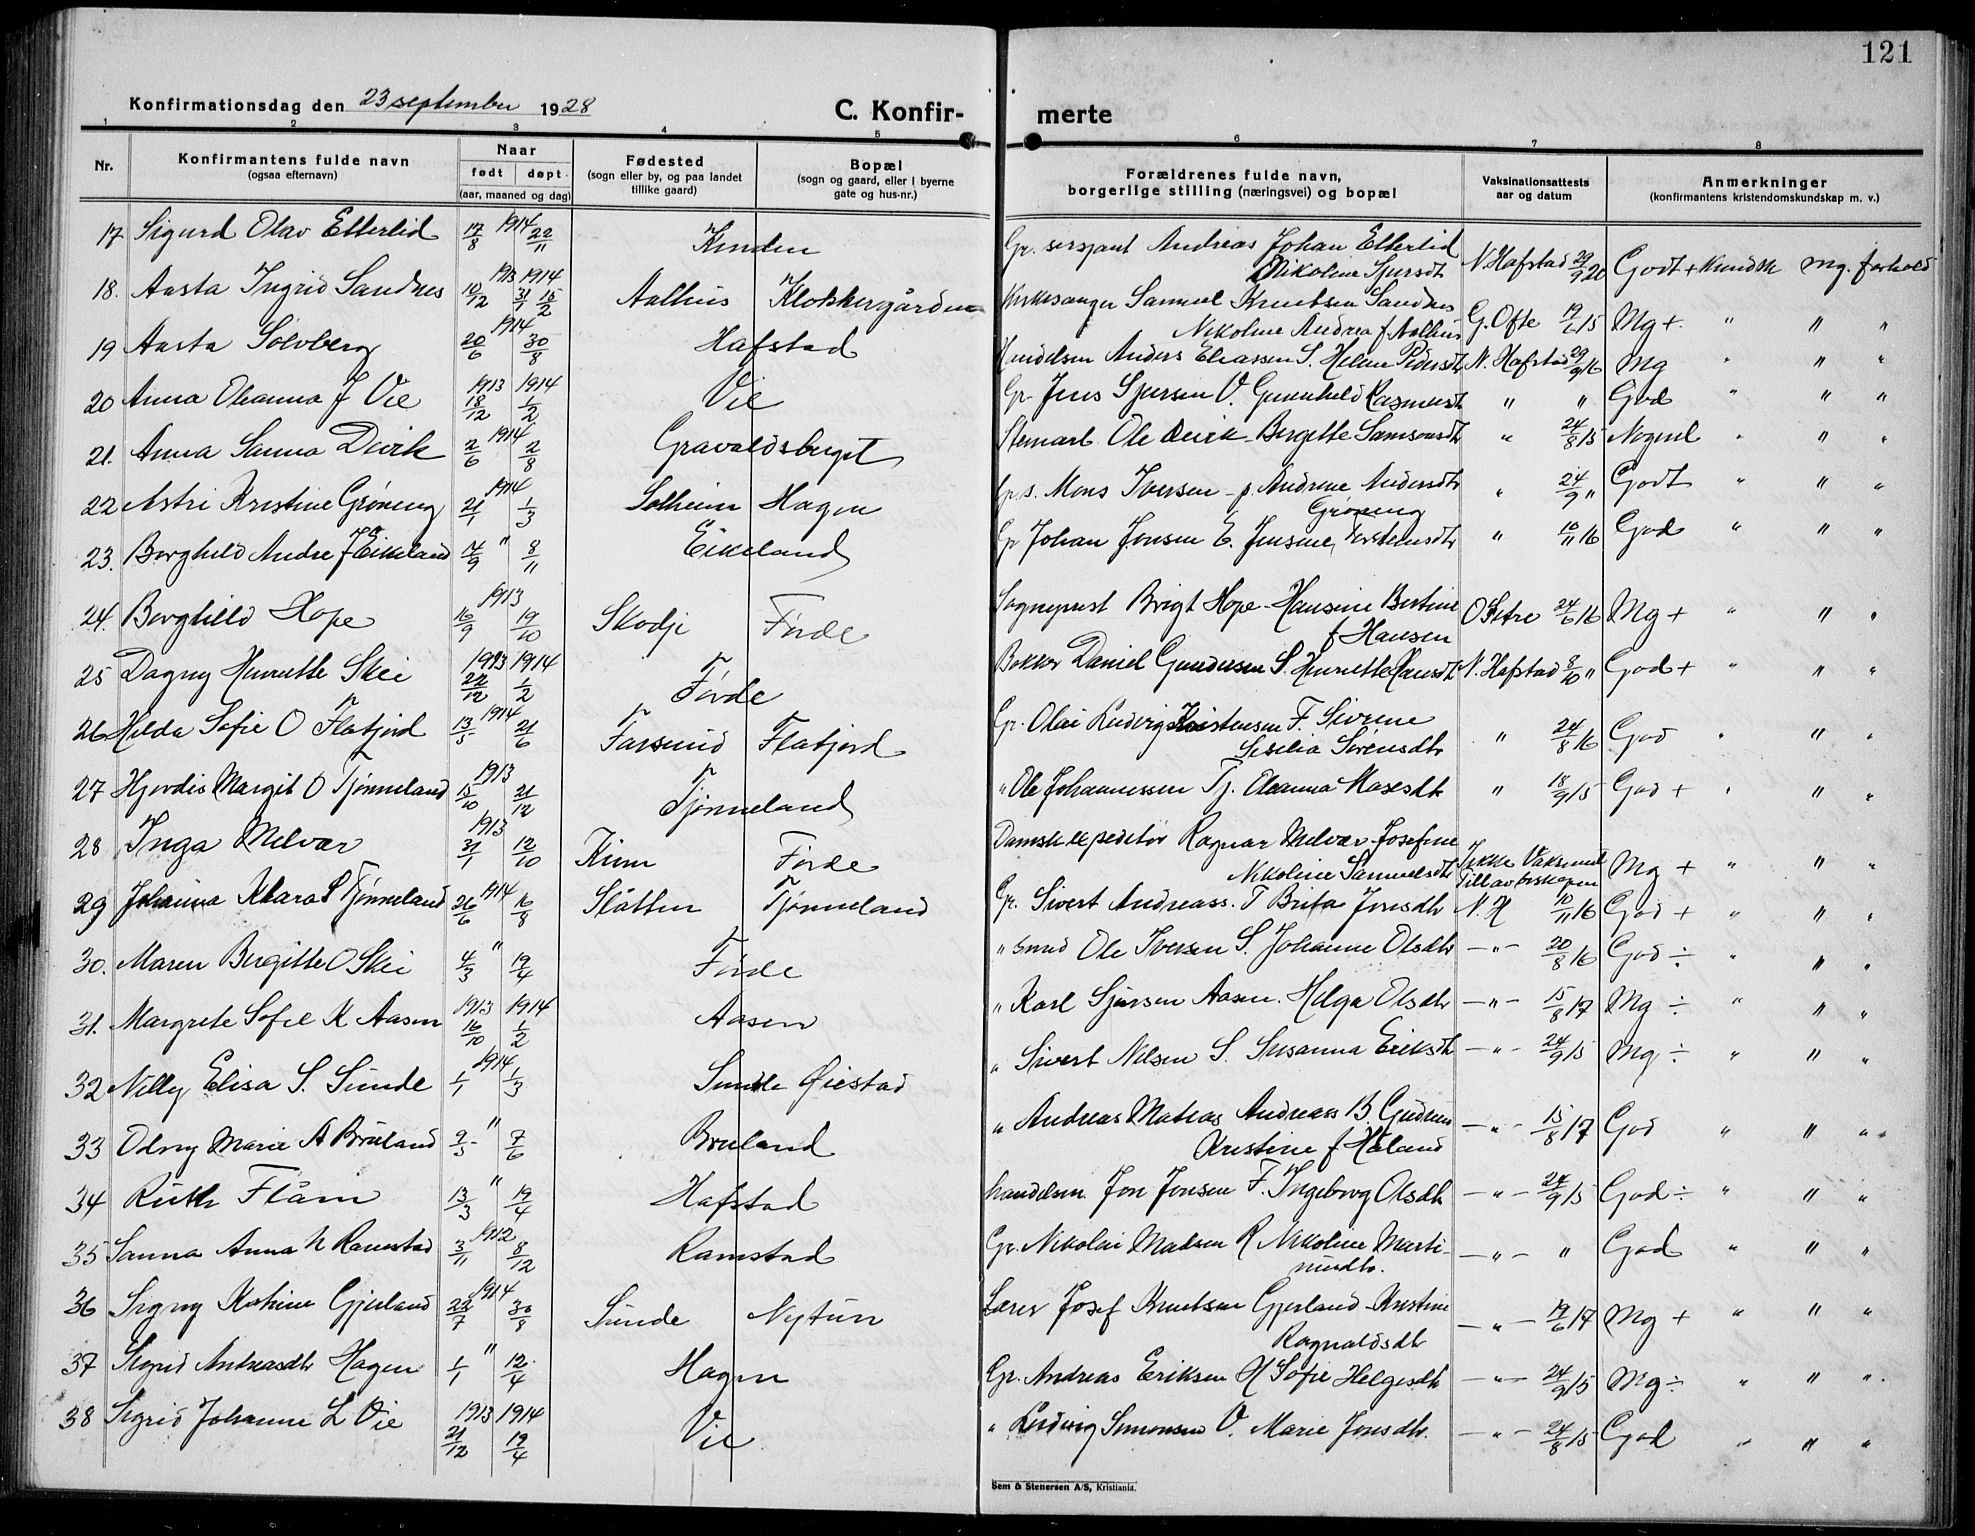 121
Konfirmationsdag den 23 september 1928 C. Konfir- merte
1 2 3 4 5 6 7 8
Nr. Konfirmantens fulde navn (ogsaa efternavn) Naar født døpt (aar, maaned og dag) Fødested (sogn eller by, og paa landet tillike gaard) Bopæl (sogn og gaard, eller i byerne gate og hus-nr.) Forældrenes fulde navn, borgerlige stilling (næringsvei) og bopæl Vaksinationsattests aar og datum Anmerkninger (konfirmantens kristendomskundskap m. v.)
17 Sigurd Olav Etterlid 17/8 1914 22/11 Kinden Gr. sersjant Andreas Johan Etterlid Nikoline Sjursdt N. Hafstad 29/9 20 Godt + Kundsk mg. forhold
18. Aasta Ingrid Sandnes 1913 1914 10/12 15/2 Aalhus Klokkergården Kirkesanger Samuel Knutsen Sandnes Nikoline Andrea f Aalhus G. Ofte 19/6 15 Mg + " " "
19 Aasta Solvberg 1914 20/6 30/8 Hafstad Handelsm Anders Eliassen S. Helene Pedersdt N. Hafstad 29/9 16 Mg " " "
20 Anna Oleanna J Vie 1913 1914 18/12 1/2 Vie Gr. Jens Sjursen V. Gunnhild Rasmusdt " " God " " "
21. Anna Sanna Devik 1914 2/6 2/8 Gravaldsberget Stenarb Ole Devik Bergitte Samsonsdt " 24/8 15 Nogenl " " "
22 Astri Kristine Grøning 1914 21/1 1/3 Solheim Hagen Gr. s. Mons Iversen - p. Andrine Andersdt Grøning " 24/9 " Godt " " "
23. Borghild Andre J Eikeland 14/9 " 8/11 Eikeland Gr Johan Jonsen E. Jensine Torsteinsdt " 10/11 16 God " " "
24. Borghild Hope 1913 16/9 19/10 Skodje Førde Sogneprest Brigt Hope - Hansine Bertine f Hansen O Sætre 24/6 16 Mg + " " "
25 Dagny Henriette Skei 1913 1914 22/12 1/2 Førde Bokker Daniel Gundersen S. Henriette Hansdt N. Hafstad 8/10 " God + " " "
26 Hilda Sofie O Flatjord 1914 13/5 21/6 Farsund Flatjord Gr. Olai Ludvig Kristensen F. Sivrine Sesilia Sørensdtr " 24/8 16 God " " "
27 Hjørdis Margit O Tjønneland 1913 15/10 21/12 Tjønneland " Ole Johannessen Tj. Oleanna Masesdt " 18/9 15 God + " " "
28 Inga Melvær 1913 31/1 12/10 Kinn Førde Damskibsekspeditør Ragnar Melvær Josefine Nikoline Samuelsdtr Ikke Vaksinert Till av biskopen Mg + " " "
29 Johanna Klara S Tjønneland 1914 26/6 16/8 Slåtten Tjønneland Gr. Sivert Andreass. T Brita Jonsdtr N. H 10/11 16 God + " " "
30. Maren Birgitte O Skei 4/3 " 19/4 Førde " smed Ole Iversen S. Johanne Olsdtr - " - 20/8 16 God ÷ " " "
31. Margrete Sofie K Aasen 1913 1914 16/10 1/2 Aasen " Karl Sjursen Aasen. Helga Olsdtr - " - 15/8 17 Mg ÷ " " "
32 Nelly Elisa S. Sunde 1914 1/1 1/3 Sunde Øiestad " Sivert Nilsen S. Susanna Eriksdtr - " - 24/9 15 Mg ÷ " " "
33 Odny Marie A Bruland 2/5 " 7/6 Bruland " Andreas Matias Andreass B. Gudrun Kristine f Håland - " - 15/8 17 God " " "
34 Ruth Flåm 13/3 " 19/4 Hafstad handelsm. Jon Jonsen F. Ingeborg Olsdtr - " - 24/9 15 God ÷ " " "
35 Sanna Anna N Ramstad 1912 3/11 8/12 Ramstad Gr. Nikolai Madsen R Nikoline Martinusdtr. - " - " God " " "
36 Signy Katrine Gjerland 1914 22/7 30/8 Sunde Nytun Lærer Josef Knutsen Gjerland - Kristine Ragnaldsdtr - " - 19/6 17 Mg + " " "
37 Sigrid Andreasdtr Hagen 1/1 " 12/4 Hagen Gr. Andreas Eriksen H Sofie Helgesdtr - " - 24/9 15 Mg ÷ " " "
38 Sigrid Johanne L Vie 1913 1914 21/12 19/4 Vie " Ludvig Simonsen V. Marie Jonsdtr. - " - 24/8 15 God " " "
Sem & Stenersen A/S, Kristiania.